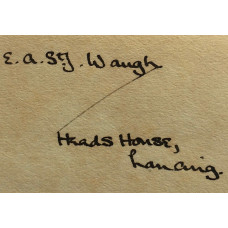 E. A. St J. Waugh
Heads House,
Lancing.